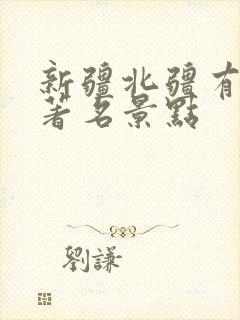 新疆北疆有
著名景點
劉謙